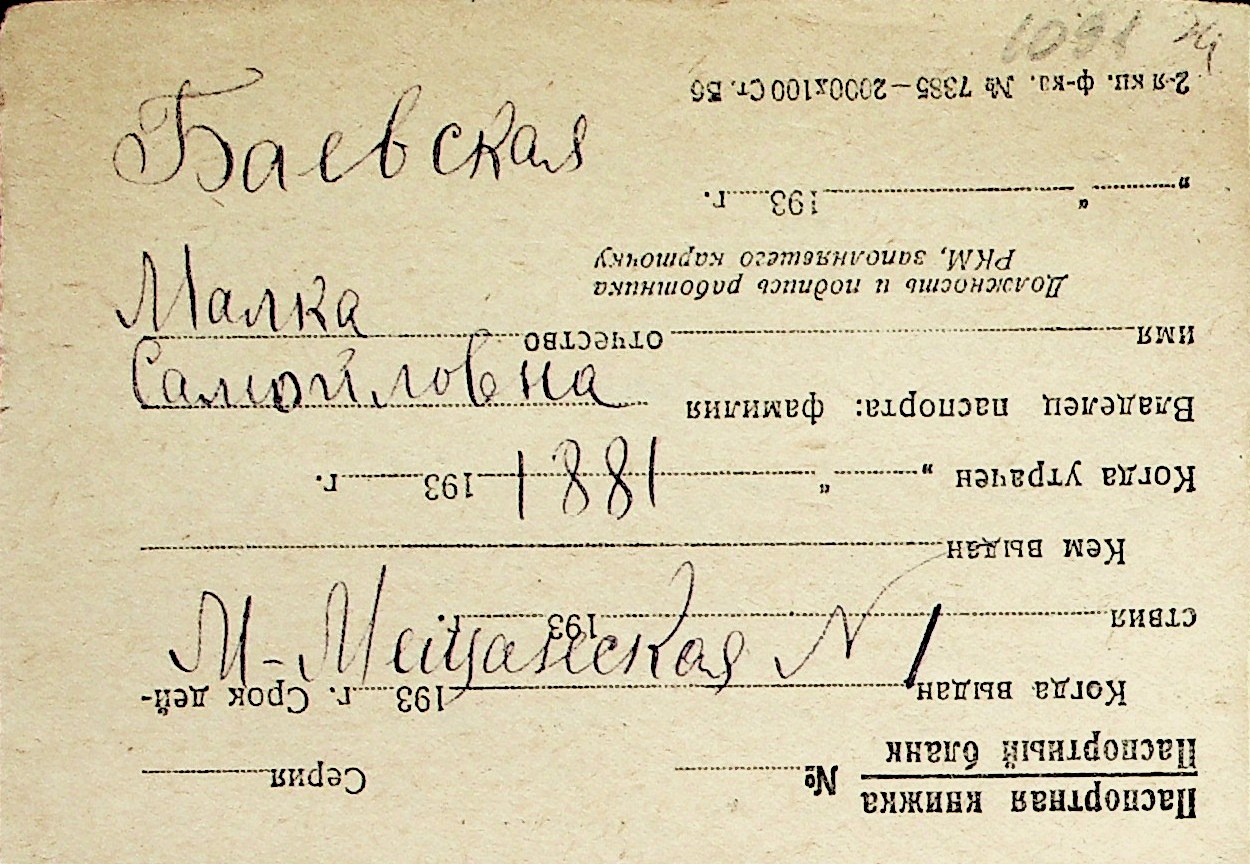 1091
Баевская
Малка
Самойловна
1881
М-Мещанская N 1
Паспортная книжка
Паспортный бланк
№ Серия
Когда выдан 193 г. Срок дей-
ствия 193 г.
Кем выдан
Когда утрачен „ “ 193 г.
Владелец паспорта: фамилия
имя отчество
Должность и подпись работника
РКМ, заполняешего карточку
„ “ 193 г.
2-я кц. ф-ка. № 7385—2000х100 Ст. Б6